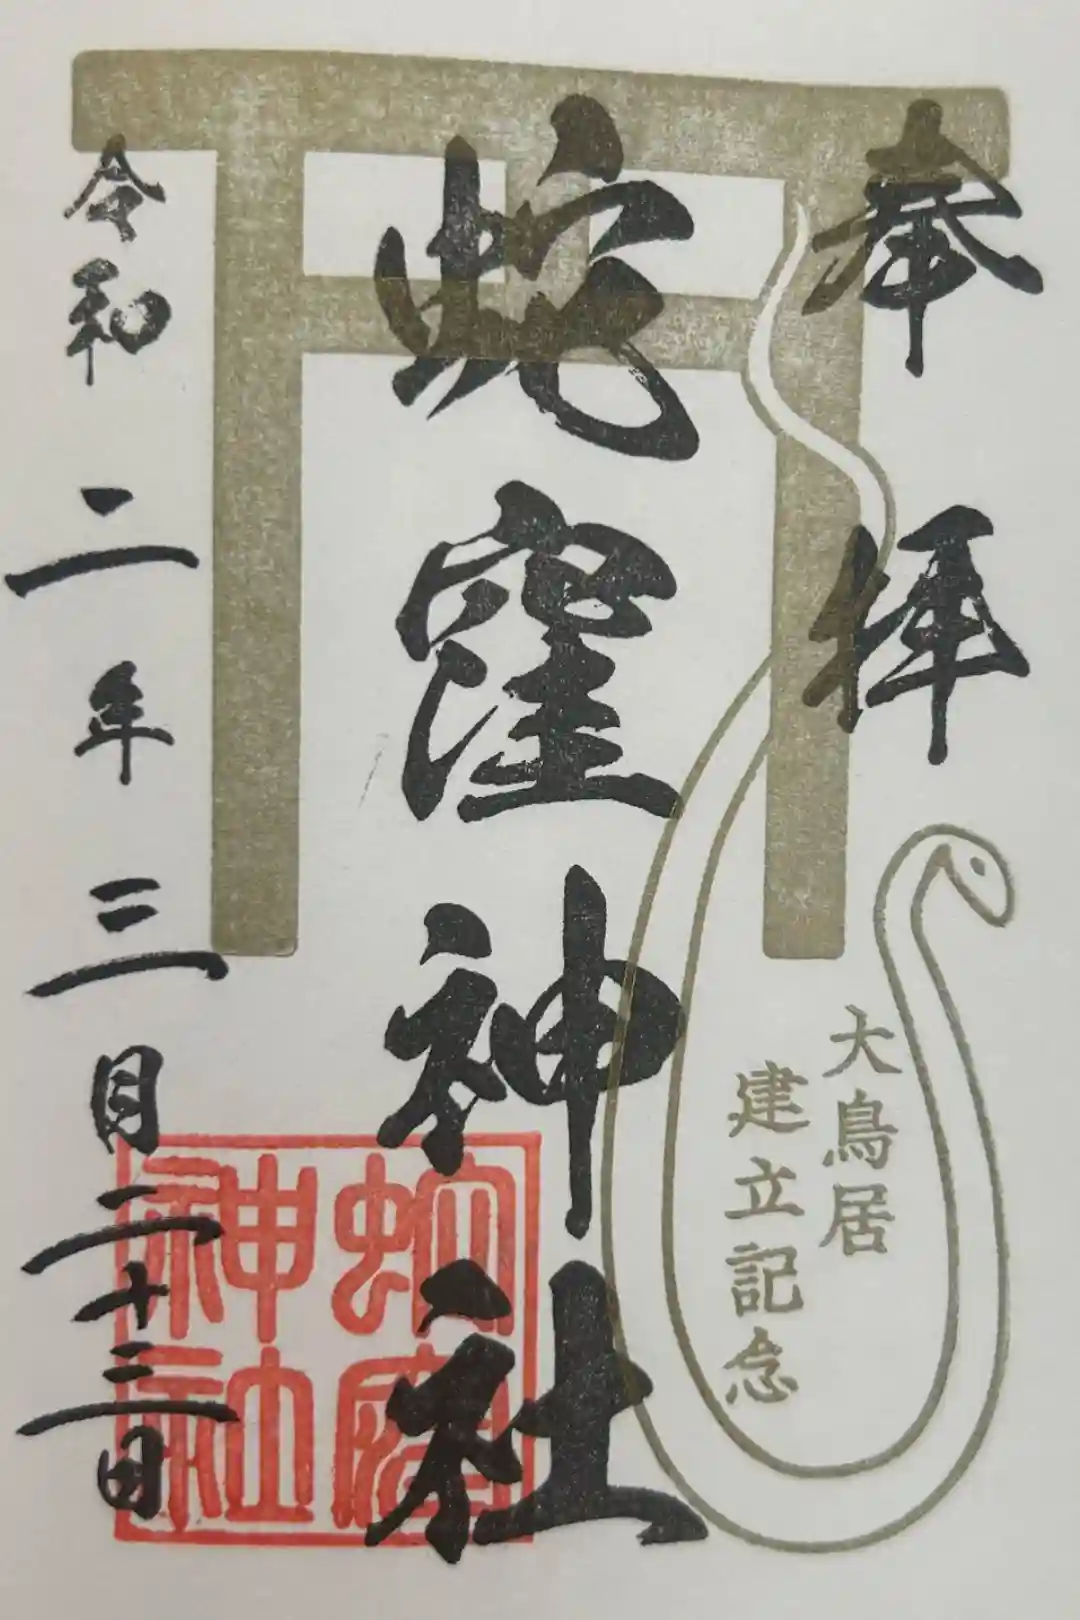 奉拝
蛇窪神社
令和二年三月二十三日
大鳥居
建立記念
蛇窪
神社